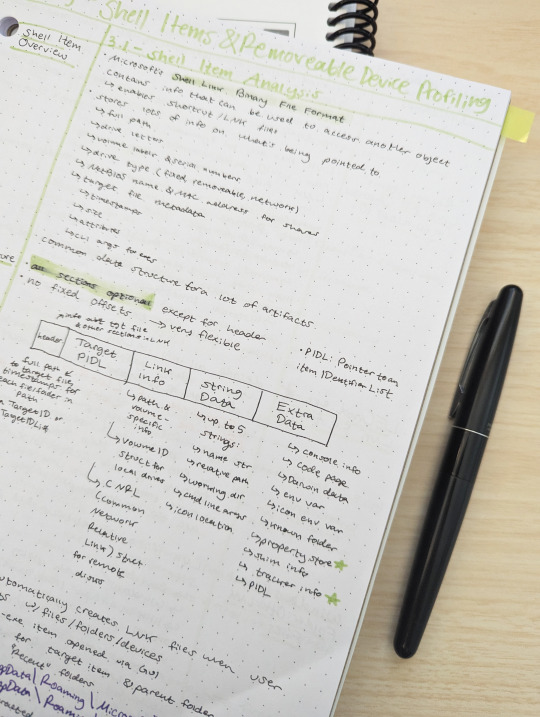 Shell Items & Removeable Device Profiling
Shell Item
Overview
3.1 - Shell Item Analysis
• Microsoft's Shell Link Binary File Format
contains info that can be used to access another object
↳ enables shortcut/LNK files
• stores lots of info on what's being pointed to
↳ full path
↳ drive letters
↳ volume labels & serial numbers
↳ drive type (fixed, removeable, network)
↳ NetBIOS name & MAC address for shares
↳ target file metadata
↳ timestamps
↳ size
↳ attributes
↳ CLI args for exes
common data structure for a lot of artifacts
• all sections optional except for header
• no fixed offsets → very flexible
info abt tgt file
& other sections in LNK
header
Target
PIDL
Link
info
String
Data
Extra
Data
• PIDL: Pointer to an
item IDentifier List
full path &
to target file,
timestamps for
each file/folder in
path
TargetID or
TargetIDList
↳ path &
volume-
specific
info
↳ VolumeID
struct for
local drives
↳ CNRL
(Common
Network
Relative
Link) struct
for remote
drives
↳ up to 5
strings:
↳ name str
↳ relative path
↳ working dir
↳ cmd line args
↳ icon location
↳ console info
↳ code page
↳ Darwin data
↳ env var
↳ icon env var
↳ known folder
↳ property store ★
↳ shim info
↳ tracker info ★
↳ PIDL
automatically creates LNK files when user
w/ files/folders/devices
-exe item opened via GUI
for target item & parent folder
"Recent" folders
Data\Roaming\Micros
Data\Roaming